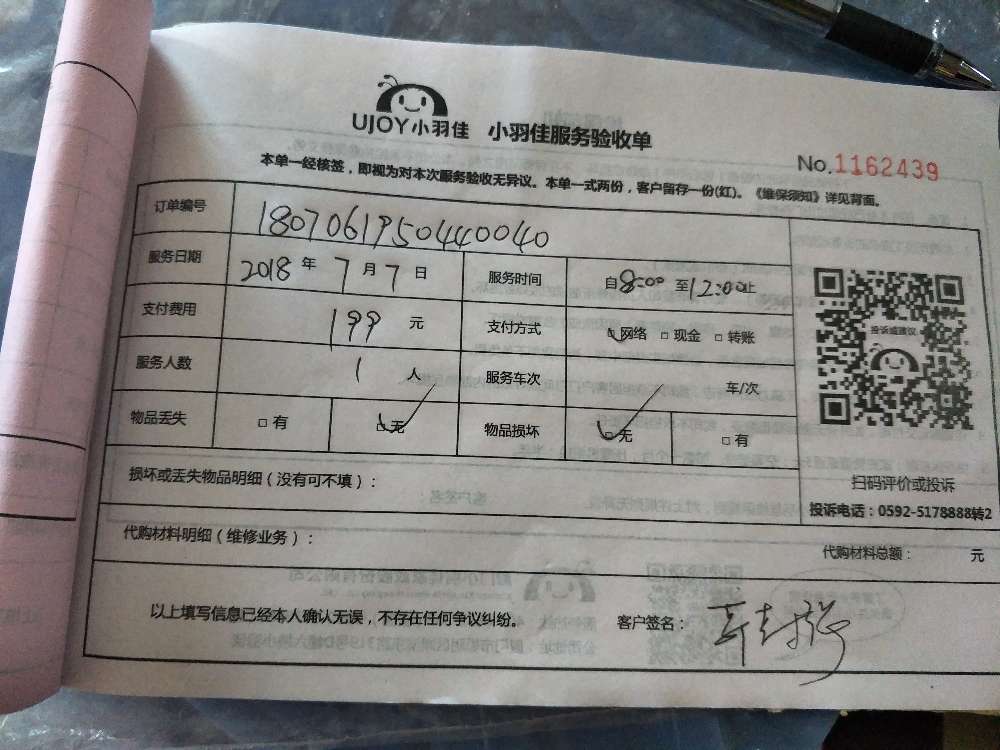 UJOY小羽佳 小羽佳服务验收单
No.1162439
本单一经核签，即视为对本次服务验收无异议。本单一式两份，客户留存一份(红)。《维保须知》详见背面。
订单编号 1807061950440040
服务日期 2018 年 7 月 7 日 服务时间 自 8:00 至 12:00 止
支付费用 199 元 支付方式 □网络 □现金 □转账
服务人数 1 人 服务车次 车/次
物品丢失 □有 □无 物品损坏 □无 □有
投诉或建议
扫码评价或投诉
投诉电话：0592-5178888转2
损坏或丢失物品明细（没有可不填）：
代购材料明细（维修业务）： 代购材料总额： 元
以上填写信息已经本人确认无误，不存在任何争议纠纷。 客户签名：